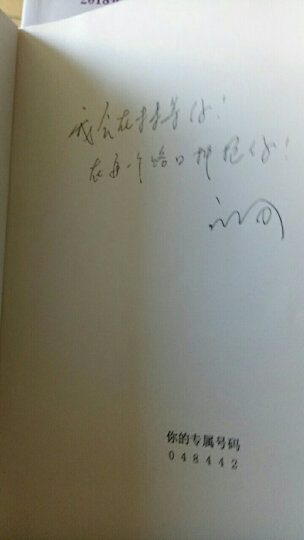 2018
我会在拐弯等你！
在每一个路口拥抱你！
你的专属号码
048442